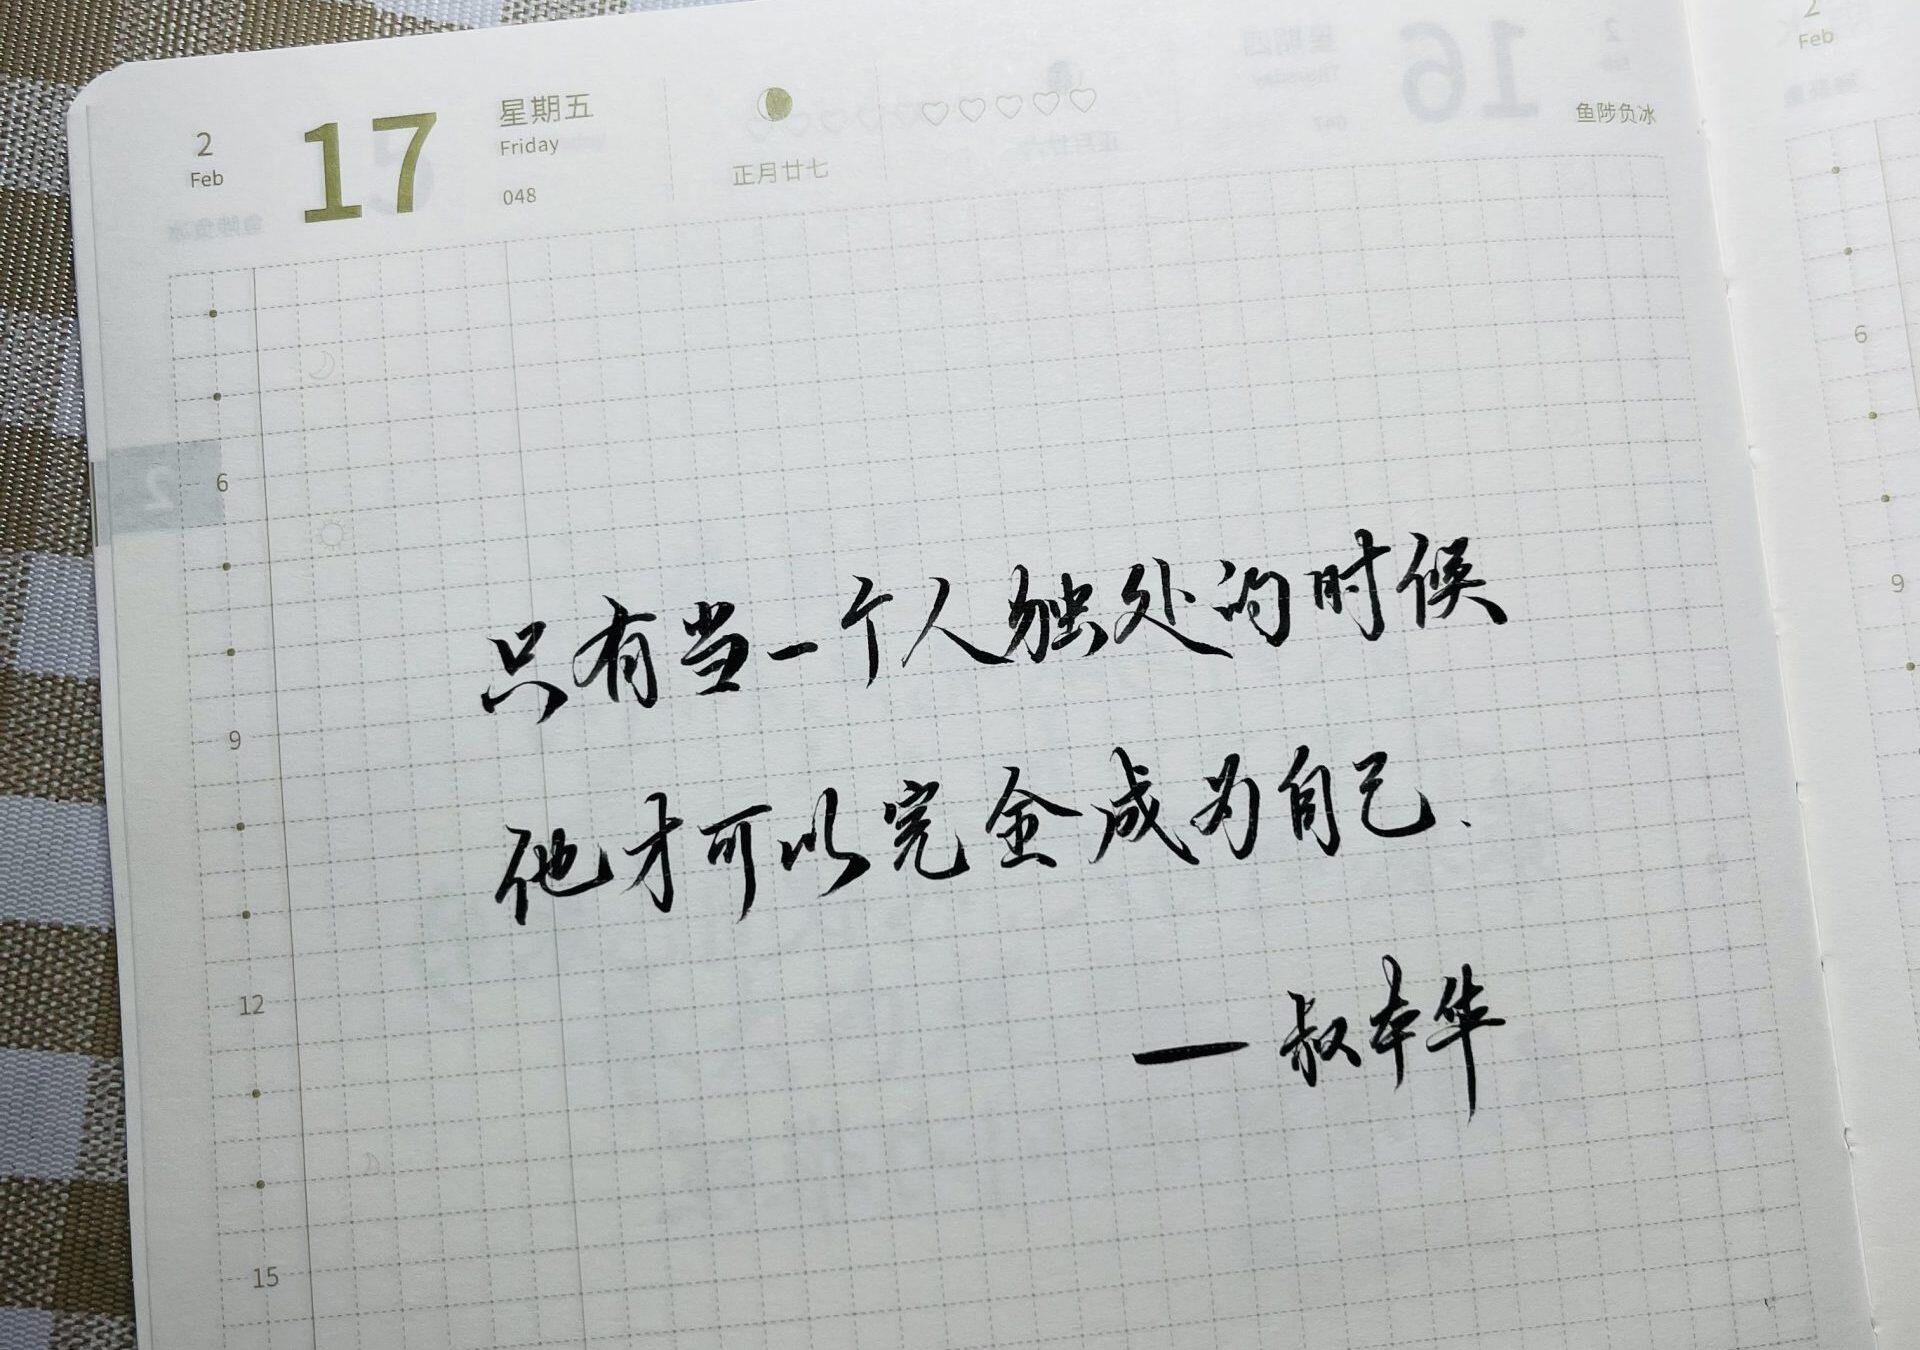 2
Feb
17
星期五
Friday
048
正月廿七
鱼陟负冰
2
Feb
6
只有当一个人独处的时候
9
他才可以完全成为自己.
12
— 叔本华
15
6
9